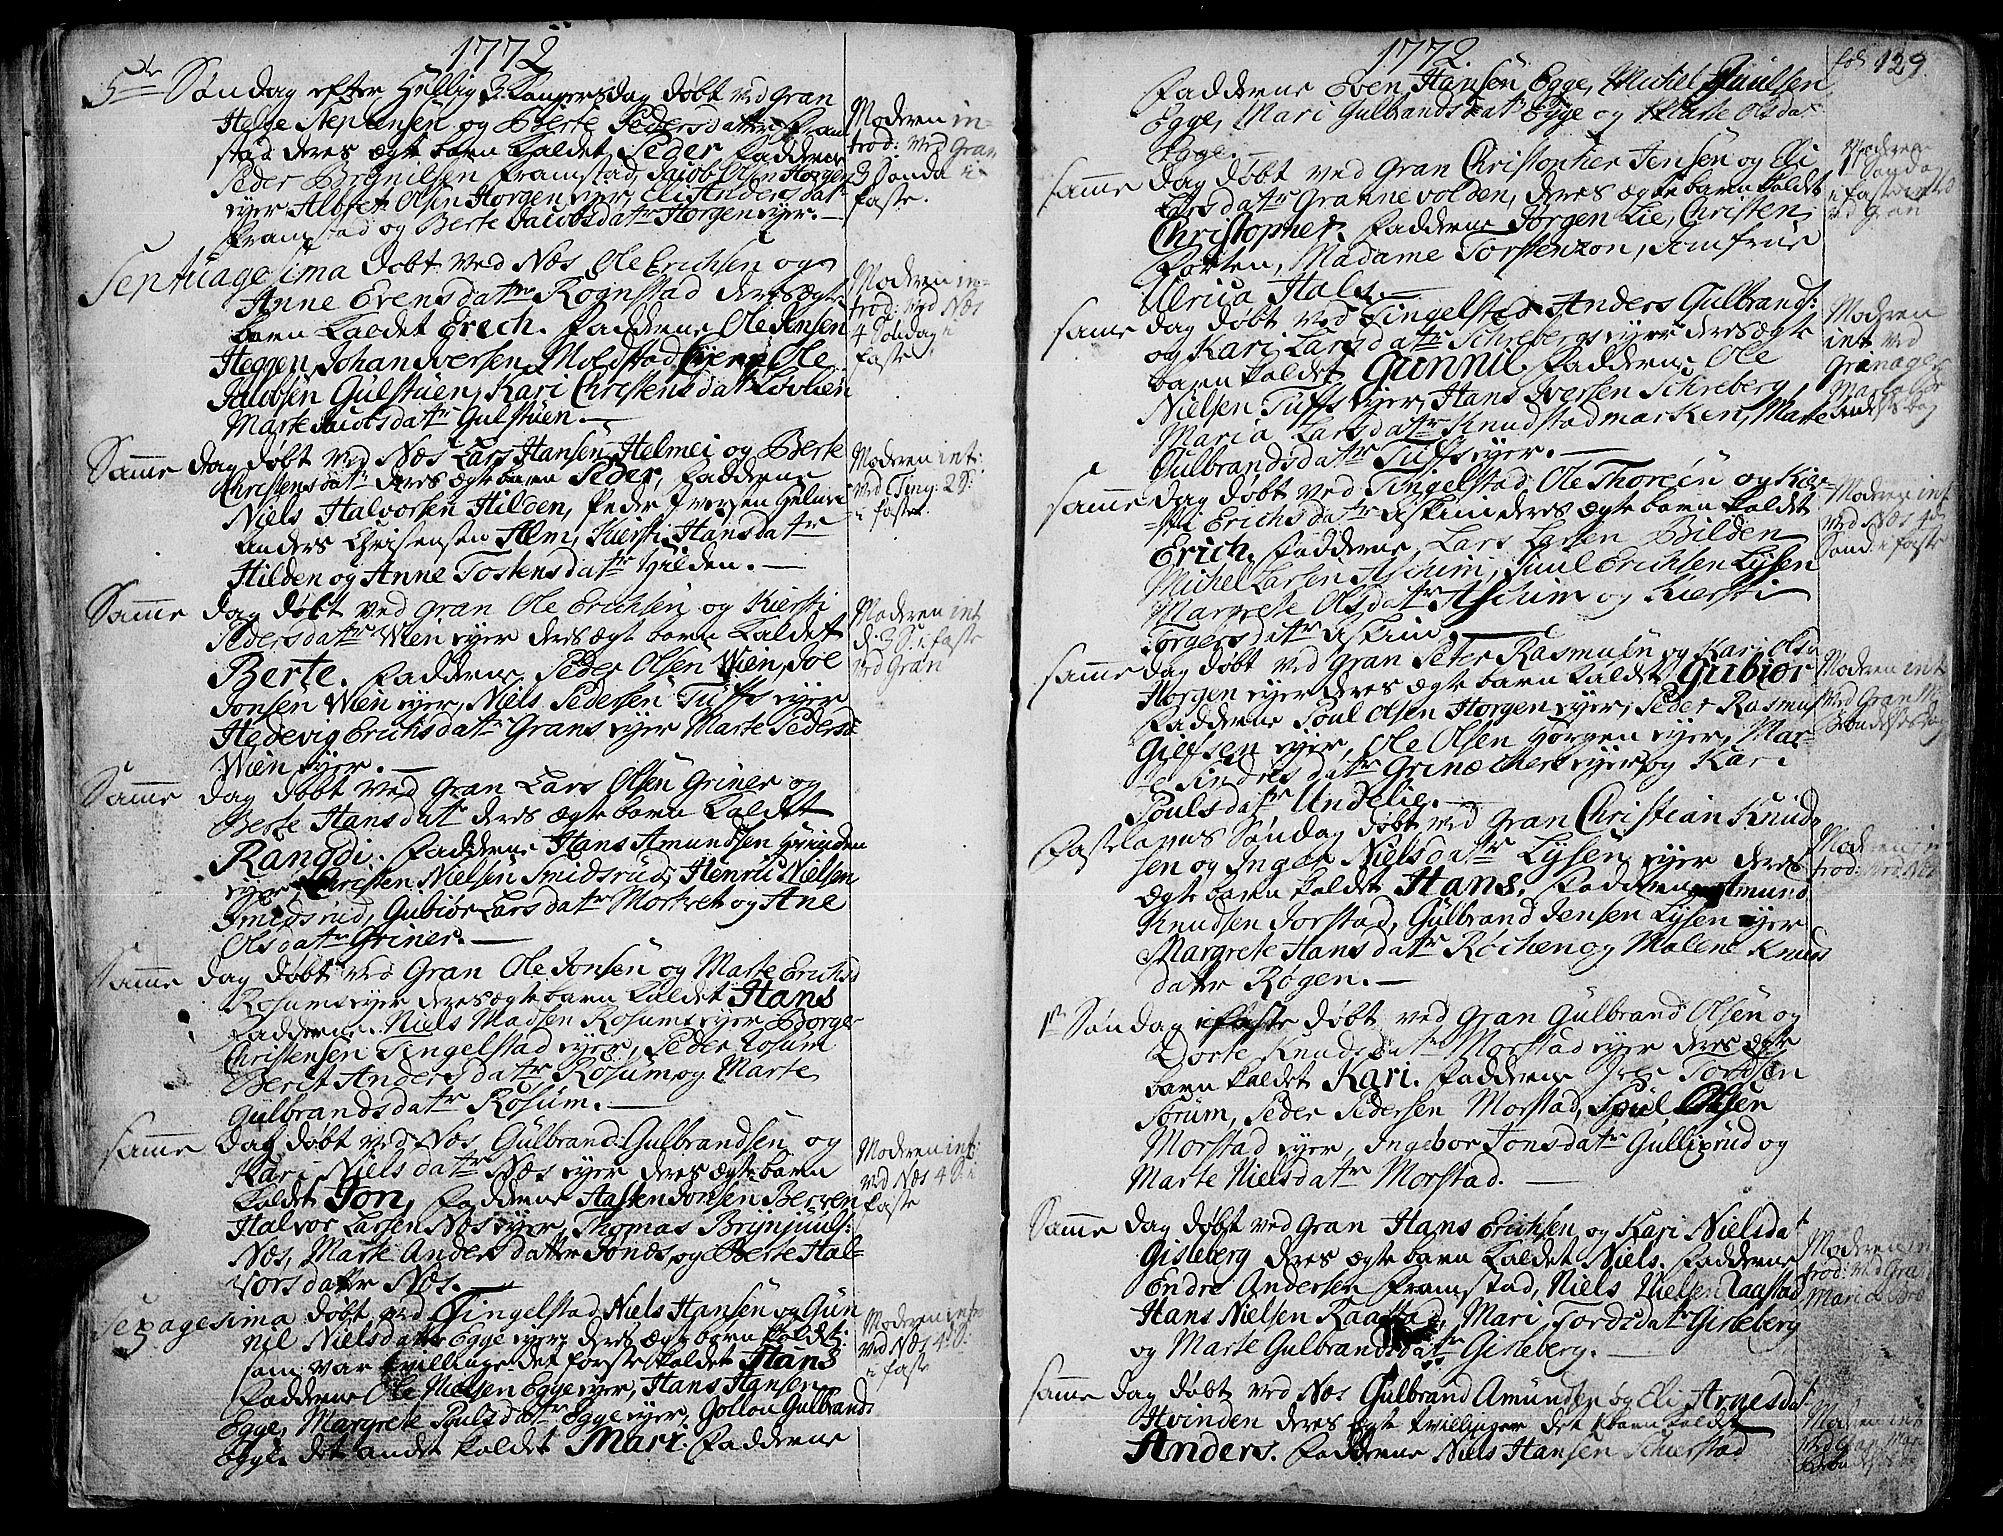 1772
5te Søndag efter Hellig 3 Kongersdag døbt ved Gran
Helge Stephensen og Berte Pedersdatter Fram
stad deres ægte barn kaldet Peder Faddere
Peder Brynilsen Framstad, Jacob Olsen Horgen
eyer Olsen Horgen eyer, Eli Andersdat
Framstad og Berte Jacobsdatr Horgen eyer. —
Moderen in-
trod: ved Gran
3 Sønda i
faste.
Septuagesima døbt ved Næs Ole Erichsen og
Anne Evensdatter Rognstad deres ægte
barn kaldet Erich. Faddere Ole Jensen
Heggen, Johan Iversen Moldstad eyer, Ole
Jacobsen Gulstuen, Kari Christensdatr Løvlien
Marte Jacobsdatr Gulstuen. —
Moderen in-
trod: ved Næs
4 Søndag i
faste.
Samme dag døbt ved Næs Lars Hansen Helmei og Berte
Christensdatr deres ægte barn Peder, Faddere
Niels Halvorsen Hilden, Peder Iversen
Anders Christensen Helm, Kiersti Hansdatr
Hilden og Anne Tostensdatr Hilden. —
Moderen int:
ved Ting: 2 S:
i faste.
Samme dag døbt ved Gran Ole Erichsen og Kiersti
Pedersdatr Wien eyer deres ægte barn kaldet
Berte. Faddere Peder Olsen Wien, Joe
Jonsen Wien eyer, Niels Pedersen Tuffs eyer
Hedevig Erichsdatr Grans eyer Marte Pedersd
Wien eyer. —
Moderen int
d: 3 S: i faste
ved Gran
Samme dag døbt ved Gran Lars Olsen Griner og
Berte Hansdatr deres ægte barn kaldet
Rangdi. Faddere Hans Amundsen Hvinden
eyer Christen Nielsen Smidsrud, Henric Nielsen
Smidsrud, Gubiør Larsdatr Morken og Ane
Olsdatr Griner. —
samme dag døbt ved Gran Ole Jonsen og Marte Erichsd
Rosums eyer deres ægte barn kaldet Hans
Faddere. Niels Madsen Rosums eyer Borger
Christensen Tingelstad eyer, Peder Rosum
Berit Andersdatr Rosum og Marte
Gulbrandsdatr Rosum. —
samme dag døbt ved Næs Gulbrand Gulbrandsen og
Kari Nielsdatr Næs eyer deres ægte barn
kaldet Jon, Faddere Aasten Jonsen Bergen
Halvor Larsen Næs eyer, Thomas Brynjuuls:
Næs, Marte Andersdatter Jonæs, og Berte Hal-
vorsdatter Næs. —
Moderen int:
ved Næs 4 S: i
faste
Sexagesima døbt ved Tingelstad Niels Hansen og Gun
nil Nielsdatter Egge eyer deres ægte børn kaldet:
som var tvillinge det første kaldet Hans
Faddere Ole Nielsen Egge eyer, Hans Hansen
Egge, Margrete Poulsdatr Egge eyer, Gollou Gulbrands
Egge. det andet kaldet Mari. Faddere
Moderen int:
ved Næs 4 S:
i faste
1772
fol 129.
Faddere Even Hansen Egge, Michel Paulsen
Egge, Mari Gulbrandsdatr Egge og Marte Olsda
Egge. —
samme dag døbt ved Gran Christopher Jensen og Eli
Larsdatr Grannevolden, deres ægte barn kaldet
Christopher. Faddere Jørgen Lie, Christen
Forten, Madame Torstenzon, Jomfrue
Ulrica Hals. —
Moderen
Sønda
i faste
ved Gran
samme dag døbt ved Tingelstad Anders Gulbrands:
og Kari Larsdatr Schrebergs eyer deres ægte
barn kaldet Gunnil. Faddere Ole
Nielsen Tuffs eyer, Hans Iversen Schreberg,
Maria Larsdatr Knudstadmarken, Marte
Gulbrandsdatr Tuffs eyer. —
Moderen
int ved
Gran
Mariæ Be
budelses dag
samme dag døbt ved Tingelstad Ole Thoresen og Kier
sti Erichsdatr Askim deres ægte barn kaldet
Erich. Faddere, Lars Larsen Bilden
Michel Larsen Aschim, Juul Erichsen Lysen
Margrete Olsdatr Aschim og Kiersti
Torgersdatr Askim. —
Moderen int
ved Næs 4de
Sønd: i faste
samme dag døbt ved Gran Peter Rasmusen og Kari Olsd
Horgen eyer deres ægte barn kaldet Gubiør
Faddere Poul Olsen Horgen eyer, Peder Rasmus
eyer, Ole Olsen Horgen eyer, Mar-
te Sindresdatr Grinækers eyer og Kari
Poulsdatr Undelie. —
Moderen int
ved Gran M:
Bebudelses dag
Fastelavns Søndag døbt ved Gran Christian Knud
sen og Inger Nielsdatr Lysen eyer deres
ægte barn kaldet Hans. Faddere Amund
Knudsen Jorstad, Gulbrand Jensen Lysen eyer
Margrete Hansdatr Røchen og Malene Knuds
datter Røgen. —
Moderen in
trod: ved Næs
1ste Søndag i faste døbt ved Gran Gulbrand Olsen og
Dorte Knudsdatr Morstad eyer deres ægte
barn kaldet Kari. Faddere Iver Tordsen
Sørum, Peder Pedersen Morstad, Poul Olsen
Morstad eyer, Ingebor Jonsdatr Gullixrud og
Marte Nielsdatr Morstad. —
Samme dag døbt ved Gran Hans Erichsen og Kari Nielsdat
Gisleberg deres ægte barn kaldet Niels. Faddere
Endre Andersen Framstad, Niels Nielsen Raastad
Hans Nielsen Raastad, Mari Tordsdatr Gisleberg
og Marte Gulbrandsdatr Gisleberg. —
Moderen in
trod: ved Gran
Mariæ Beb
samme dag døbt ved Næs Gulbrand Amundsen og Eli Arnesdat
Hvinden deres ægte tvillinger det 1 barn kaldet
Anders. Faddere Niels Hansen Schierstad
Moderen int
ved Gran Mari
Bebudelses